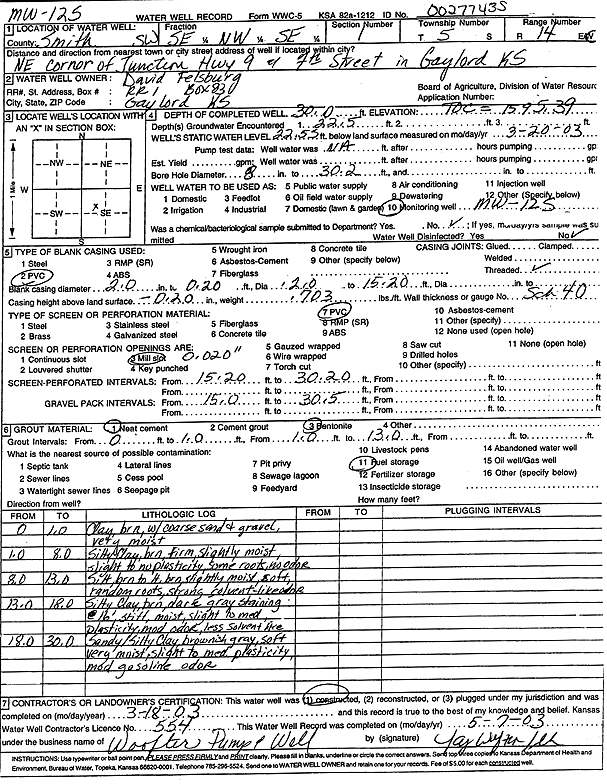 MW-125 WATER WELL RECORD Form WWC-5 KSA 82a-1212 ID No. 00277435
1 LOCATION OF WATER WELL: Fraction Section Number Township Number Range Number
County: Smith SW SE ¼ NW ¼ SE ¼ 1 T 5 S R 14 E/W
Distance and direction from nearest town or city street address of well if located within city?
NE Cornor of Junction Hwy 9 & 4th Street in Gaylord KS
2 WATER WELL OWNER: David Felsburg
RR#, St. Address, Box # : RR1 Box 830 Board of Agriculture, Division of Water Resour
City, State, ZIP Code : Gaylord KS Application Number:
3 LOCATE WELL'S LOCATION WITH AN "X" IN SECTION BOX:
N
NW NE
W E
SW X SE
S
1 Mile
4 DEPTH OF COMPLETED WELL 30.0 ft. ELEVATION: TOC = 1595.39
Depth(s) Groundwater Encountered 1. 22.5 ft. 2. ft. 3. ft.
WELL'S STATIC WATER LEVEL 22.53 ft. below land surface measured on mo/day/yr 3-20-03
Pump test data: Well water was NA ft. after hours pumping gp
Est. Yield gpm: Well water was ft. after hours pumping gp
Bore Hole Diameter 8 in. to 30.2 ft., and in. to ft.
WELL WATER TO BE USED AS: 5 Public water supply 8 Air conditioning 11 Injection well
1 Domestic 3 Feedlot 6 Oil field water supply 9 Dewatering 12 Other (Specify below)
2 Irrigation 4 Industrial 7 Domestic (lawn & garden) 10 Monitoring well MW-125
Was a chemical/bacteriological sample submitted to Department? Yes. No. ✓; If yes, mo/day/yrs sample was su
mitted Water Well Disinfected? Yes No ✓
5 TYPE OF BLANK CASING USED: 5 Wrought iron 8 Concrete tile CASING JOINTS: Glued Clamped
1 Steel 3 RMP (SR) 6 Asbestos-Cement 9 Other (specify below) Welded
2 PVC 4 ABS 7 Fiberglass Threaded ✓
Blank casing diameter 2.0 in. to 0.20 ft., Dia 2.0 in. to 15.20 ft., Dia in. to
Casing height above land surface -0.20 in., weight .703 lbs./ft. Wall thickness or gauge No. Sch 40
TYPE OF SCREEN OR PERFORATION MATERIAL: 7 PVC 10 Asbestos-cement
1 Steel 3 Stainless steel 5 Fiberglass 8 RMP (SR) 11 Other (specify)
2 Brass 4 Galvanized steel 6 Concrete tile 9 ABS 12 None used (open hole)
SCREEN OR PERFORATION OPENINGS ARE: 5 Gauzed wrapped 8 Saw cut 11 None (open hole)
1 Continuous slot 3 Mill slot 0.020" 6 Wire wrapped 9 Drilled holes
2 Louvered shutter 4 Key punched 7 Torch cut 10 Other (specify)
SCREEN-PERFORATED INTERVALS: From 15.20 ft. to 30.20 ft., From ft. to
From ft. to ft., From ft. to
GRAVEL PACK INTERVALS: From 15.0 ft. to 30.5 ft., From ft. to
From ft. to ft., From ft. to
6 GROUT MATERIAL: 1 Neat cement 2 Cement grout 3 Bentonite 4 Other
Grout Intervals: From 0 ft. to 1.0 ft., From 1.0 ft. to 13.0 ft., From ft. to
What is the nearest source of possible contamination: 10 Livestock pens 14 Abandoned water well
1 Septic tank 4 Lateral lines 7 Pit privy 11 Fuel storage 15 Oil well/Gas well
2 Sewer lines 5 Cess pool 8 Sewage lagoon 12 Fertilizer storage 16 Other (specify below)
3 Watertight sewer lines 6 Seepage pit 9 Feedyard 13 Insecticide storage
Direction from well? How many feet?
FROM TO LITHOLOGIC LOG FROM TO PLUGGING INTERVALS
0 1.0 Clay, brn, w/coarse sand & gravel,
very moist
1.0 8.0 Silty Clay, brn, firm, slightly moist,
slight to no plasticity, some roots, no odor
8.0 13.0 Silt, brn to lt. brn, slightly moist, soft,
random roots, strong solvent-like odor
13.0 18.0 Silty Clay, brn, dark gray staining
@16' stiff, moist, slight to med.
plasticity, mod odor, less solvent like
18.0 30.0 Sandy/Silty Clay, brownish gray, soft
very moist, slight to med. plasticity,
mod gasoline odor
7 CONTRACTOR'S OR LANDOWNER'S CERTIFICATION: This water well was (1) constructed, (2) reconstructed, or (3) plugged under my jurisdiction and was
completed on (mo/day/year) 3-18-03 and this record is true to the best of my knowledge and belief. Kansas
Water Well Contractor's Licence No. 554 This Water Well Record was completed on (mo/day/yr) 5-7-03
under the business name of Woofter Pump & Well by (signature)
INSTRUCTIONS: Use typewriter or ball point pen. PLEASE PRESS FIRMLY and PRINT clearly. Please fill in blanks, underline or circle the correct answers. Send top three copies to Kansas Department of Health and
Environment, Bureau of Water, Topeka, Kansas 66620-0001. Telephone 785-296-5524. Send one to WATER WELL OWNER and retain one for your records. Fee of $5.00 for each constructed well.